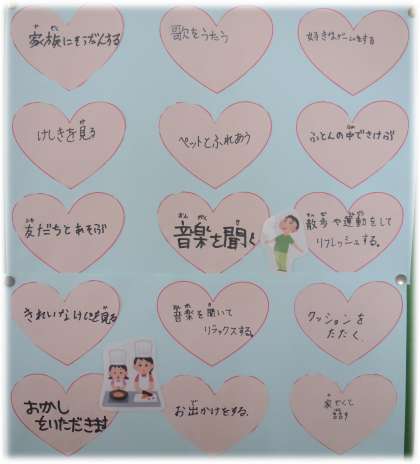 家族にそうだんする
歌をうたう
好きなゲームをする
けしきを見る
ペットとふれあう
ふとんの中でさけぶ
友だちとあそぶ
音楽を聞く
散歩や運動をして
リフレッシュする。
きれいなけしきを見る
音楽を聞いて
リラックスする。
クッションを
たたく。
おかし
をいただきます
お出かけをする。
家
話す